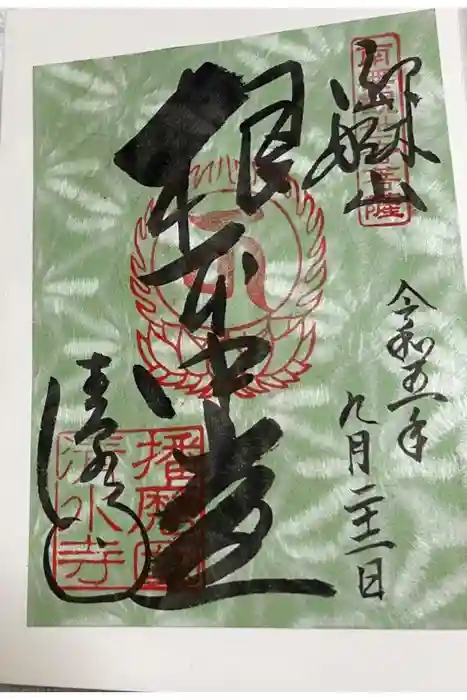 御嶽山
令和五年
九月二十二日
根本中堂
清水寺
播磨國
清水寺